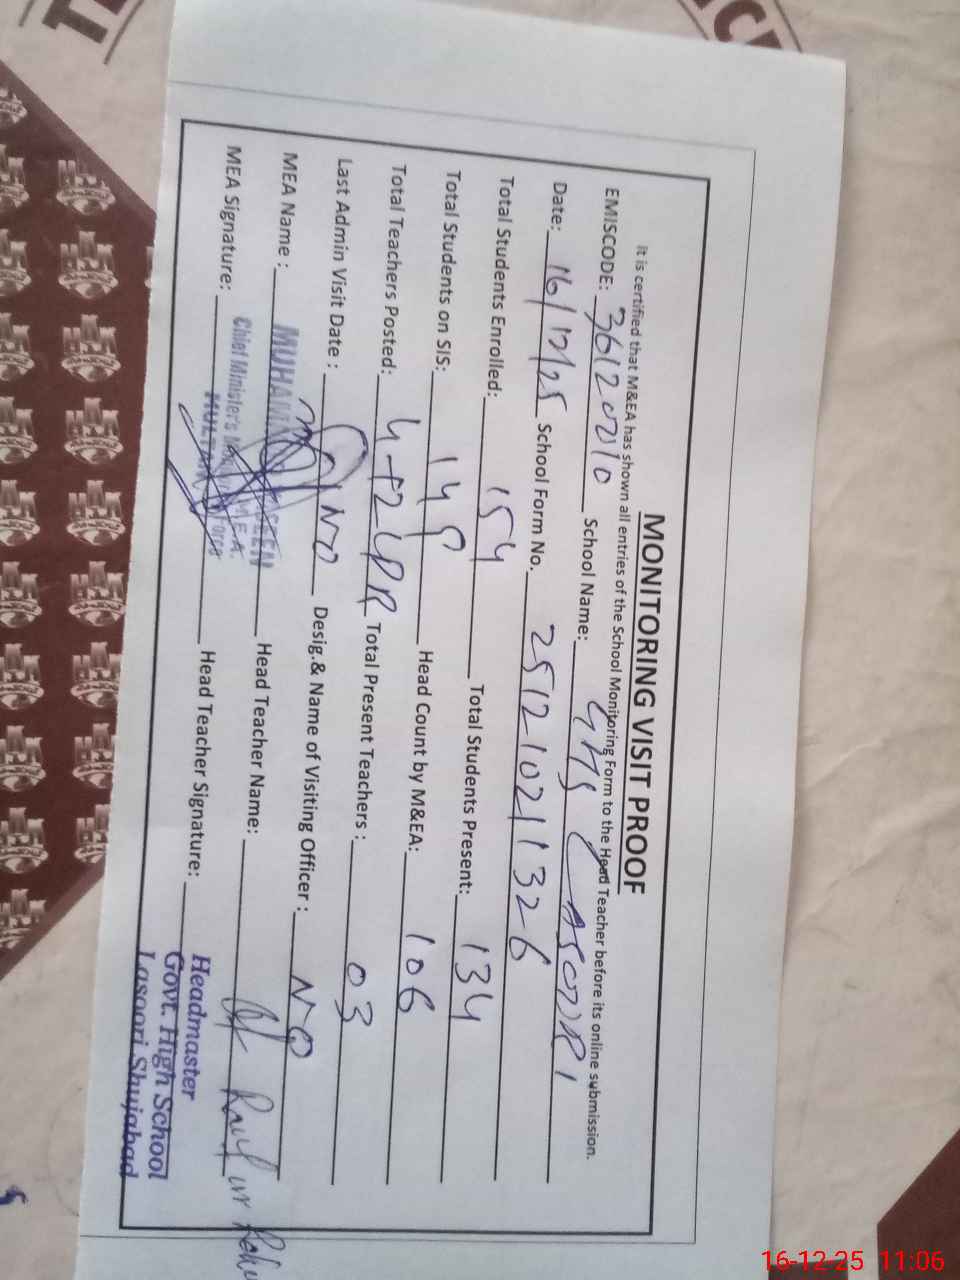 MONITORING VISIT PROOF
It is certified that M&EA has shown all entries of the School Monitoring Form to the Head Teacher before its online submission.
EMISCODE: 36120010 School Name: GHS LASOORI
Date: 16/12/25 School Form No. 25121021326
Total Students Enrolled: 154 Total Students Present: 134
Total Students on SIS: 149 Head Count by M&EA: 106
Total Teachers Posted: 4+2 Total Present Teachers : 03
Last Admin Visit Date : NO Desig.& Name of Visiting Officer : NO
MEA Name : MUHAMMAD Head Teacher Name:
Chief Minister's M.E.A.
MEA Signature: MULTAN Head Teacher Signature:
Headmaster
Govt. High School
Lasoori Shujabad
16-12-25 11:06